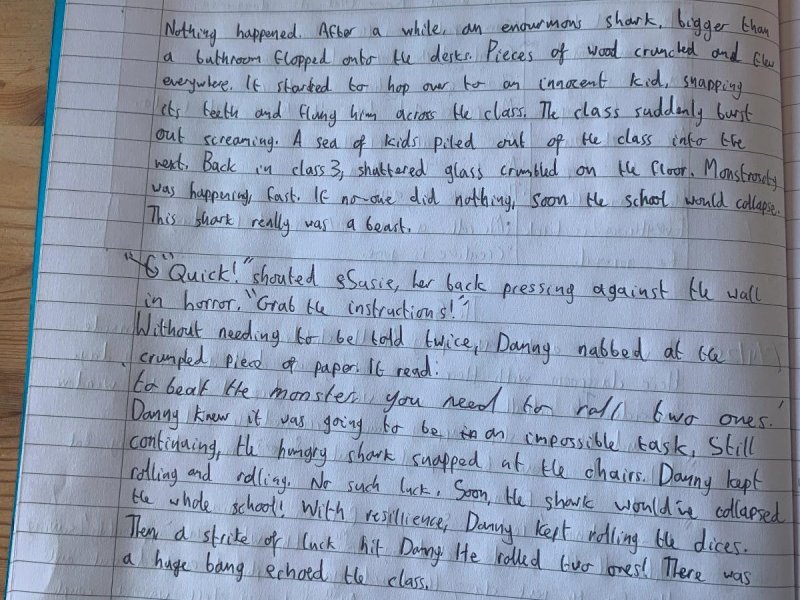 Nothing happened. After a while, an enourmous shark, bigger than
a bathroom flopped onto the desks. Pieces of wood crunched and flew
everywhere. It started to hop over to an innocent kid, snapping
its teeth and flung him across the class. The class suddenly burst
out screaming. A sea of kids piled out of the class into the
next. Back in class 3, shattered glass crumbled on the floor. Monstrosity
was happening, fast. If no-one did nothing, soon the school would collapse.
This shark really was a beast.
"Quick!" shouted Susie, her back pressing against the wall
in horror. "Grab the instructions!"
Without needing to be told twice, Danny nabbed at the
crumpled piece of paper. It read:
to beat the monster, you need to roll two ones.'
Danny knew it was going to be an impossible task. Still
continuing, the hungry shark snapped at the chairs. Danny kept
rolling and rolling. No such luck. Soon, the shark would've collapsed
the whole school! With resillience, Danny kept rolling the dices.
Then a strike of luck hit Danny. He rolled two ones! There was
a huge bang echoed the class.